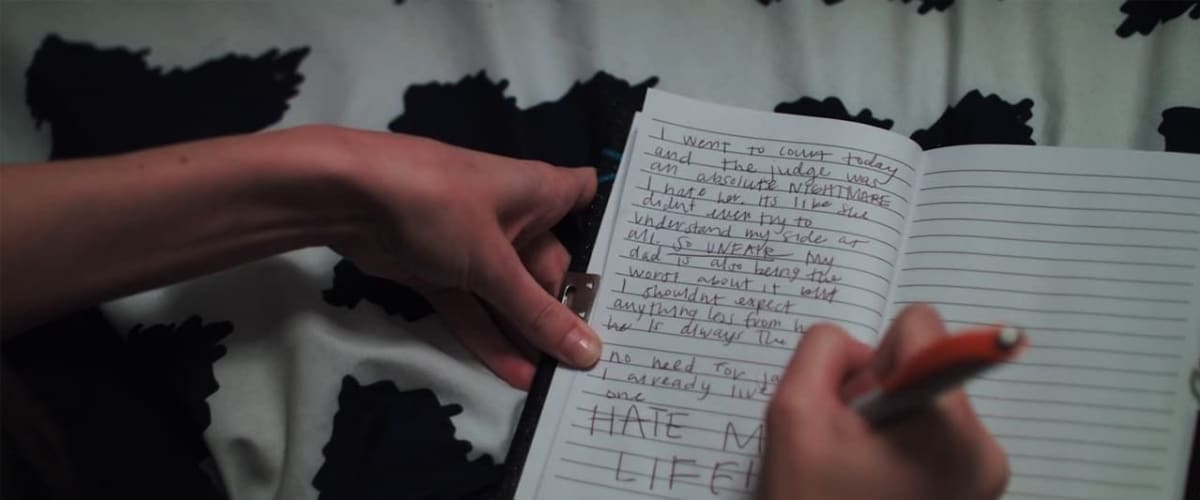 I went to court today
and the judge was
an absolute NIGHTMARE
I hate her. Its like she
didnt even try to
understand my side at
all. SO UNFAIR My
dad is also being the
worst about it but
I shouldnt expect
anything less from
he is always the
no need for
I already live
one
HATE
LIFE